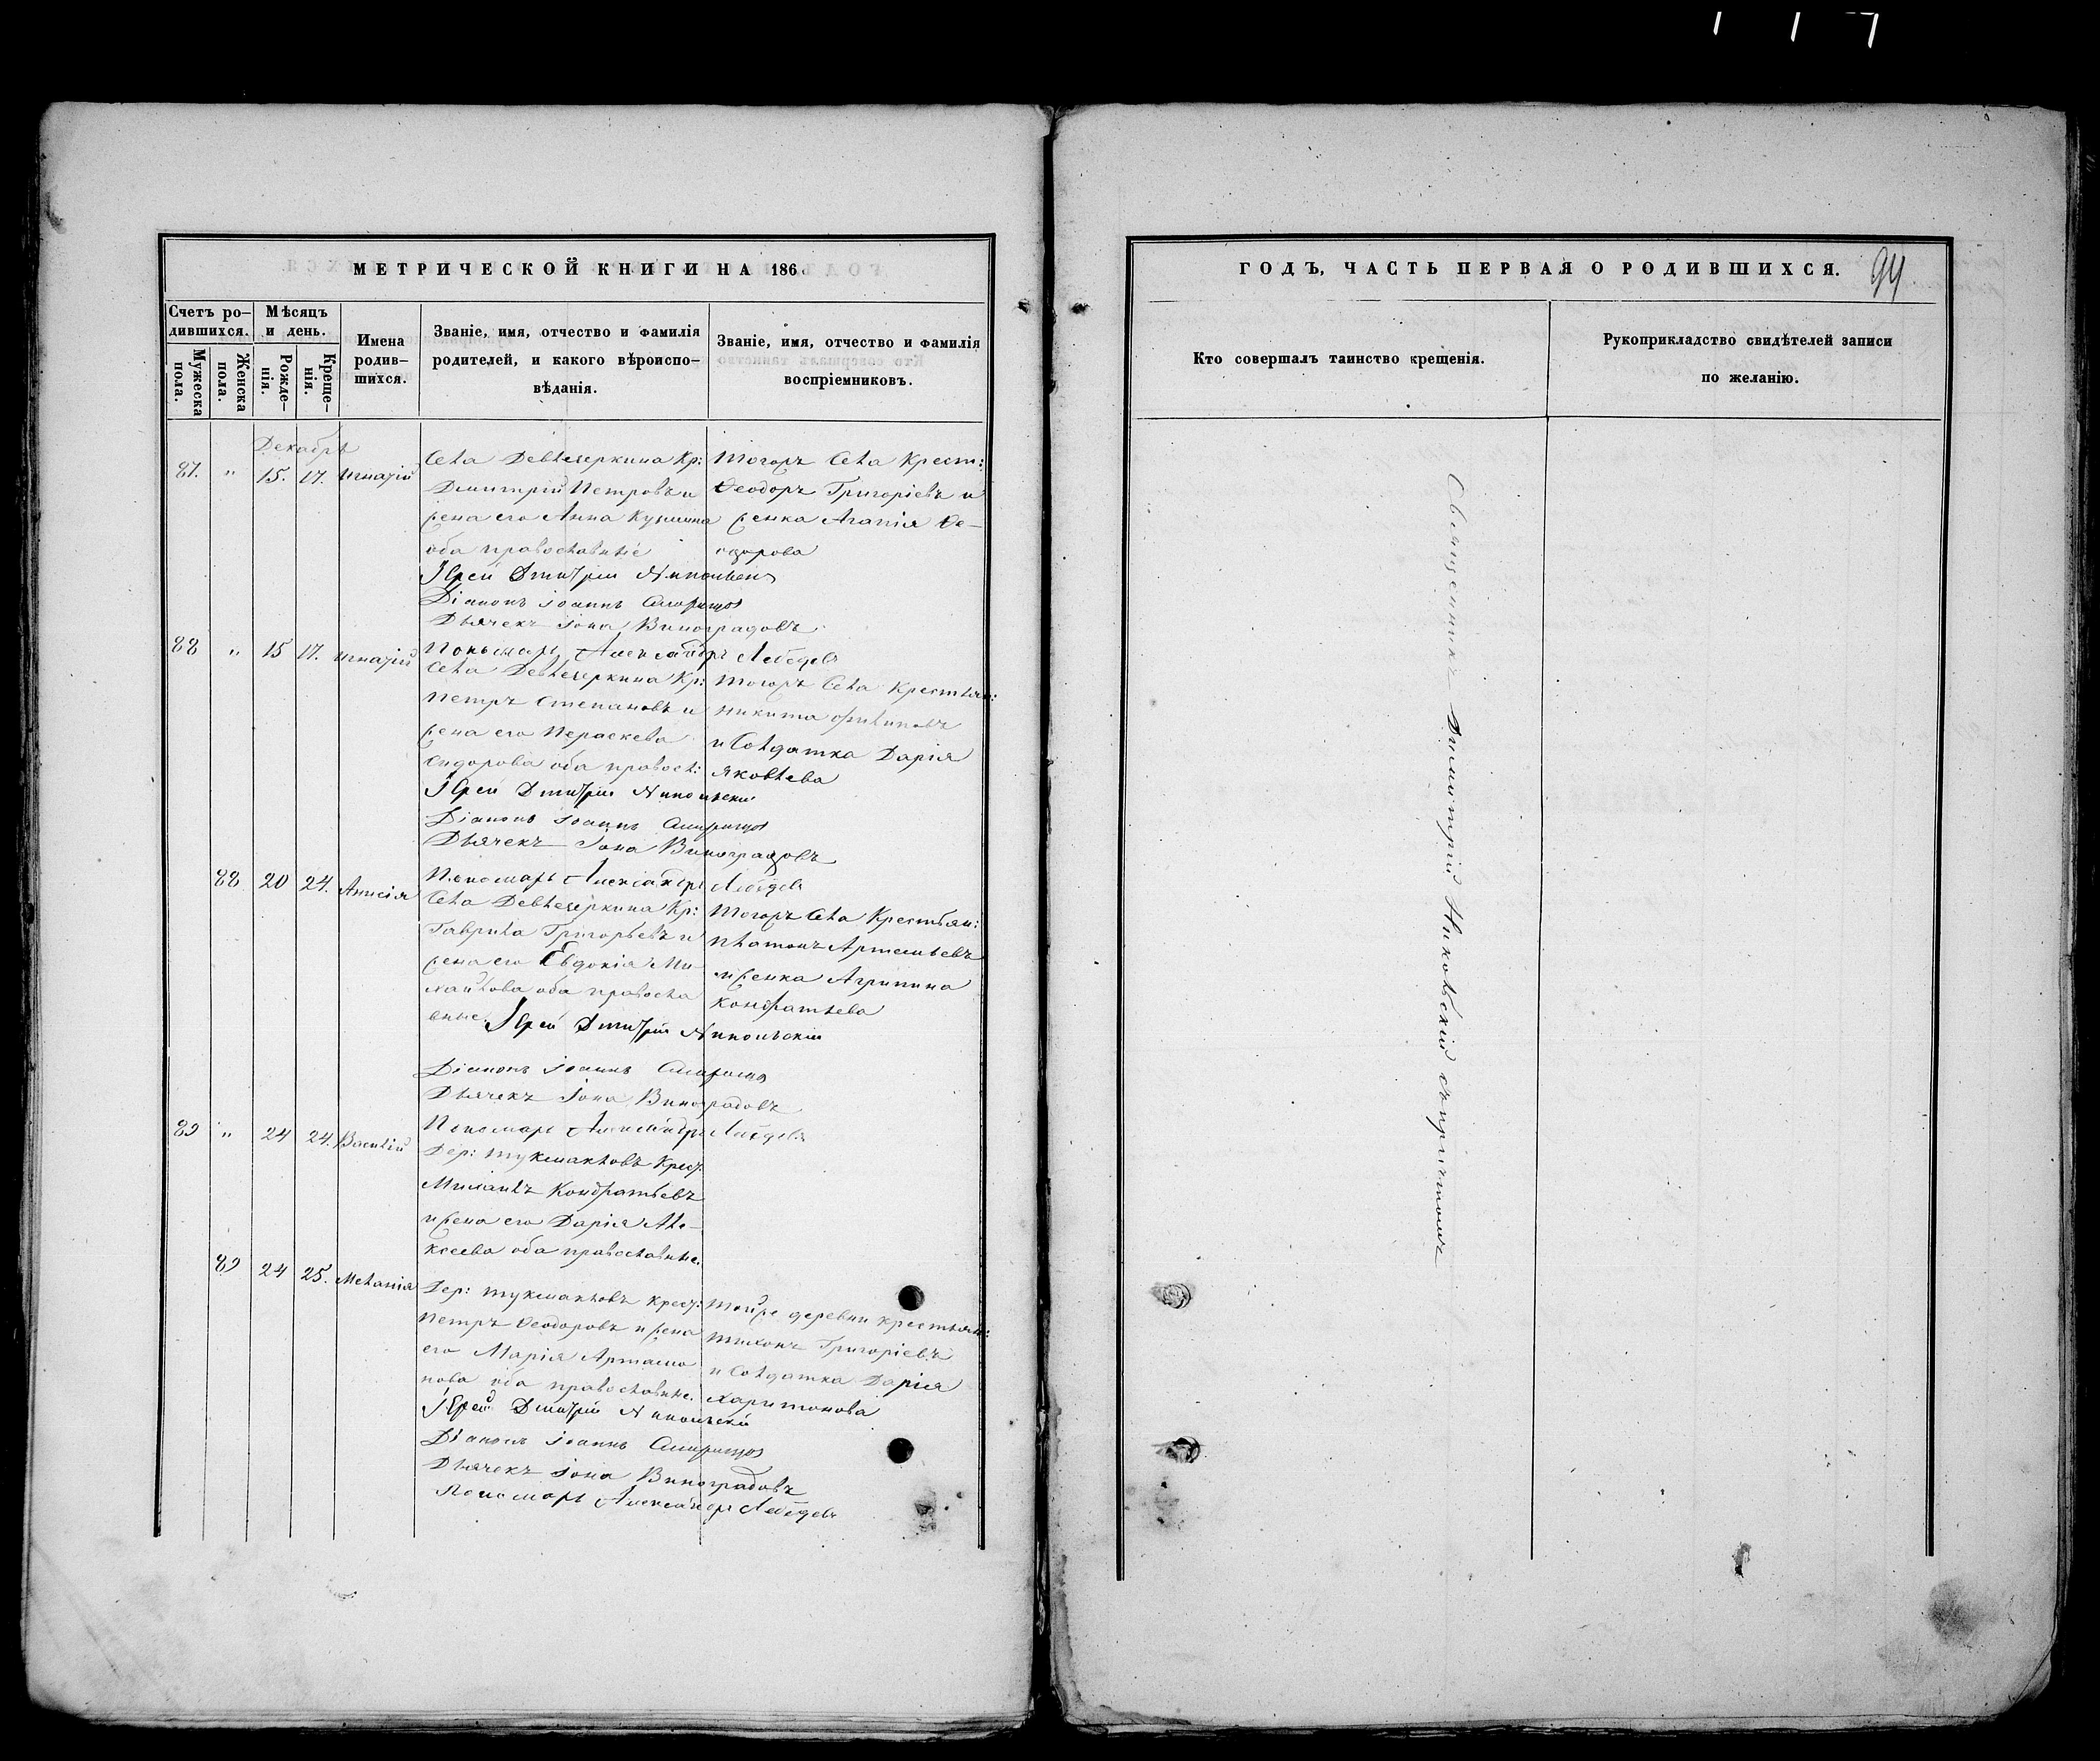 1 1 7
МЕТРИЧЕСКОЙ КНИГИ НА 186
Счетъ ро-
дившихся.
Мѣсяцъ
и день.
Мужеска
пола.
Женска
пола.
Рожде-
нія.
Креще-
нія.
Имена
родив-
шихся.
Званіе, имя, отчество и фамилія
родителей, и какого вѣроиспо-
вѣданія.
Званіе, имя, отчество и фамилія
воспріемниковъ.
Декабрь
87. " 15. 17. Игнатій
Села Девлезеркина Кр:
Дмитрій Петровъ и
жена его Анна
оба православные
Тогожъ Села Крест:
Ѳеодоръ Григоріевъ и
женка Агапія Ѳе-
одорова
Іерей Дмитрій Никольскій
Діаконъ Іоаннъ
Дьячекъ Іона Виноградовъ
Пономарь Александръ Лебедевъ
88 " 15 17. Игнатій
Села Девлезеркина Кр:
Петръ Степановъ и
жена его Пераскева
Сидорова оба правосл:
Тогожъ Села Крестьян:
Никита Филиповъ
и Солдатка Дарія
Яковлева
Іерей Дмитрій Никольскій
Діаконъ Іоаннъ
Дьячекъ Іона Виноградовъ
Пономарь Александръ Лебедевъ
88 20 24. Анисія
Села Девлезеркина Кр:
Гаврила Григорьевъ и
жена его Евдокія Ми-
хайлова оба правосла
вные.
Тогожъ Села Крестьян:
Платонъ Артемьевъ
и женка Агрипина
Кондратьева
Іерей Дмитрій Никольскій
Діаконъ Іоаннъ
Дьячекъ Іона Виноградовъ
Пономарь Александръ Лебедевъ
89 " 24 24. Василій
Дер: Тукмакловъ Крест:
Михаилъ Кондратьевъ
и жена его Дарія Але-
ксеева оба православные.
89 24 25. Меланія
Дер: Тукмакловъ крест:
Петръ Ѳеодоровъ и жена
его Марія Артамо
нова оба православные.
Тойже деревни крестьян:
Тихонъ Григоріевъ
и Солдатка Дарія
Харитонова
Іерей Дмитрій Никольскій
Діаконъ Іоаннъ
Дьячекъ Іона Виноградовъ
Пономарь Александръ Лебедевъ
ГОДЪ, ЧАСТЬ ПЕРВАЯ О РОДИВШИХСЯ.
94
Кто совершалъ таинство крещенія.
Рукоприкладство свидѣтелей записи
по желанію.
Священникъ Димитрій Никольскій съ причтомъ